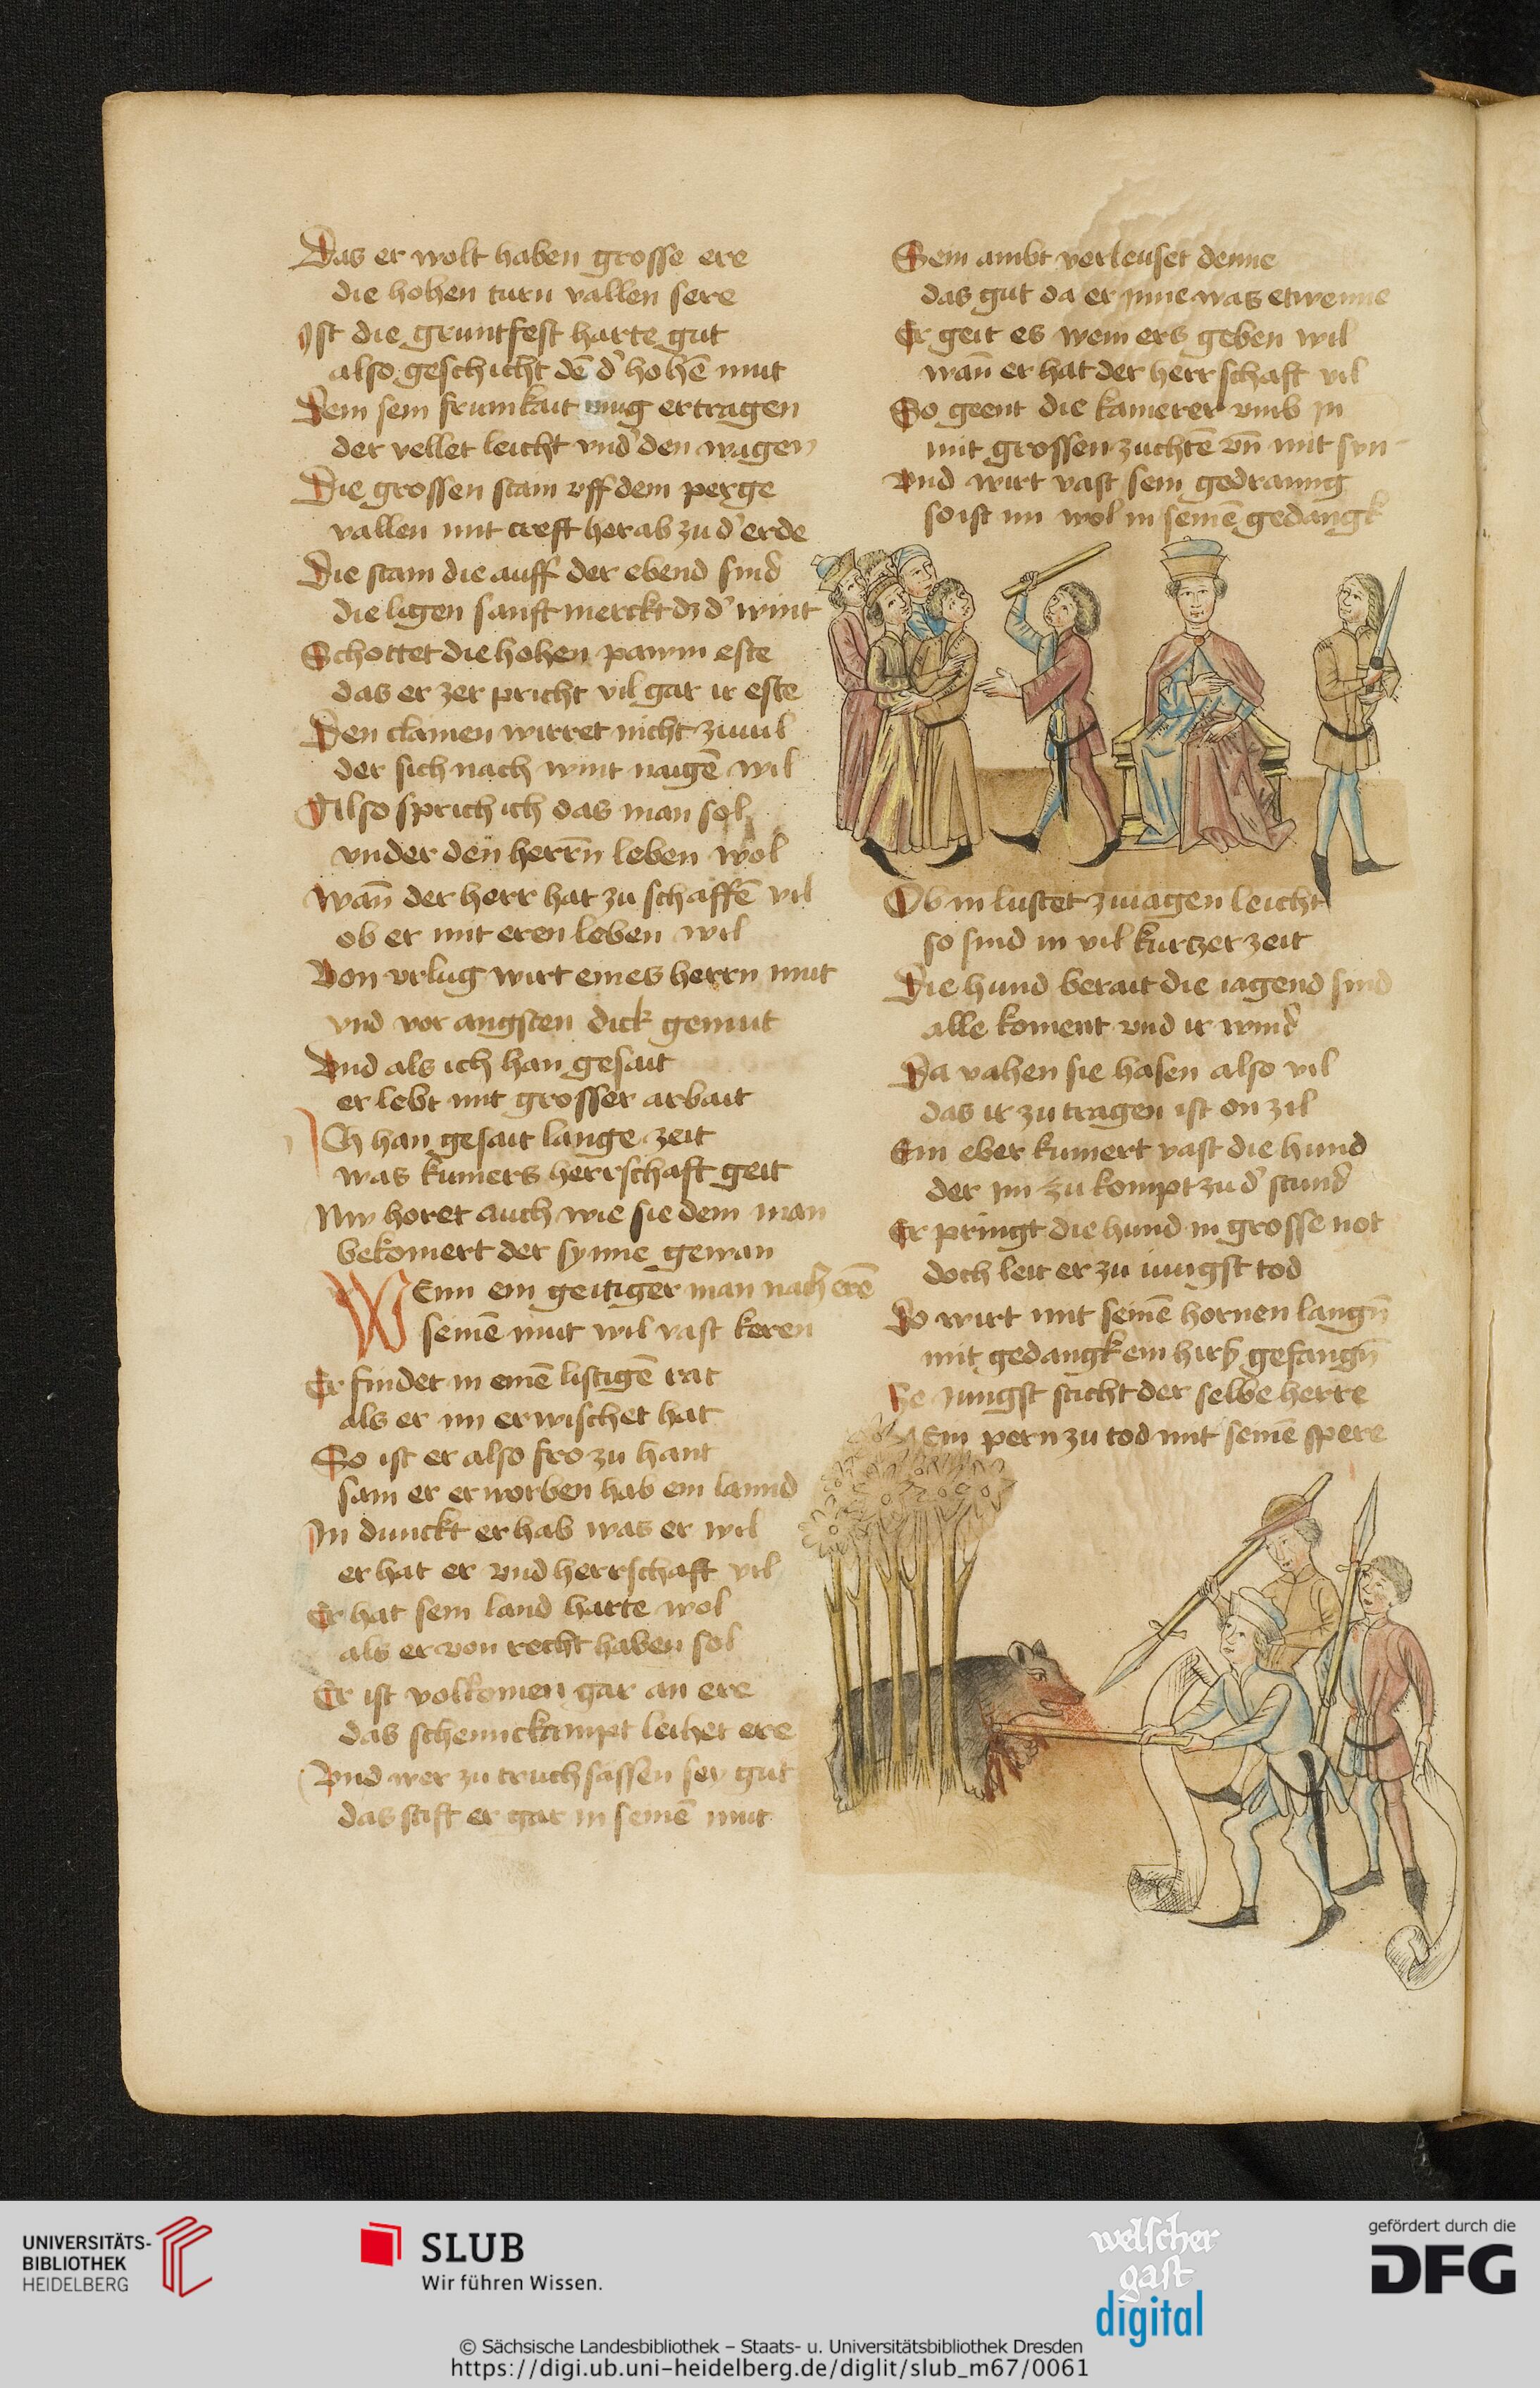 Das er wolt haben grosse ere
die hohen turn vallen sere
Ist die gruntfest harte gut
also geschicht dē d' hohē mut
Dem sein frumkait mug ertragen
der vellet leicht vnd' den wagen
Die grossen stain vff dem perge
vallen mit creft herab zu d' erde
Die stain die auff der ebend sind
die ligen sanft merckt dz d' wint
Schottet die hohen pawm este
das er zerpricht vil gar ir este
Den clainen wirret nicht zuuil
der sich nach wint naigē wil
Also sprich ich das man sol
vnder den herrn leben wol
Wañ der herr hat zu schaffē vil
ob er mit eren leben wil
Von vrlug wirt eines herrn mut
vnd vor angsten dick gemut
Vnd als ich han gesait
er lebt mit grosser arbait
Ich han gesait lange zeit
was kumers herrschaft geit
Nw horet auch wie sie dem man
bekomert der synne gewan
WEnn ein geitiger man nach erē
seinē mut wil vast keren
Er findet in einē listigē rat
als er im erwischet hat
So ist er also fro zu hant
sam er erworben hab ein lannd
In dunckt er hab was er wil
er hat er vnd herrschaft vil
Er hat sein land harte wol
als er von recht haben sol
Er ist volkomen gar an ere
das schennckampt leihet ere
Vnd wer zu truchsassen sey gut
das stift er gar in seinē mut
Sein ambt verleuset denne
das gut da er jnne was etwenne
Er geit es wem ers geben wil
wañ er hat der herrschaft vil
So geent die kamerer vmb jn
mit grossen zuchtē vñ mit syn
Vnd wirt vast sein gedranng
so ist im wol in seinē gedangk
Ob in lustet zuiagen leicht
so sind in vil kurtzer zeit
Die hund berait die iagend sind
alle koment vnd ir wind
Da vahen sie hasen also vil
das ir zu tragen ist on zil
Ein eber kumert vast die hund
der im zu kompt zu d' stund
Er pringt die hund in grosse not
doch leit er zu iungst tod
Do wirt mit seinē hornen langn̄
mit gedangk ein hirß gefangn̄
Ze jungst sticht der selbe herre
Ein pern zu tod mit seinē spere
UNIVERSITÄTS-
BIBLIOTHEK
HEIDELBERG
SLUB
Wir führen Wissen.
welscher
gast
digital
gefördert durch die
DFG
© Sächsische Landesbibliothek – Staats- u. Universitätsbibliothek Dresden
https://digi.ub.uni-heidelberg.de/diglit/slub_m67/0061